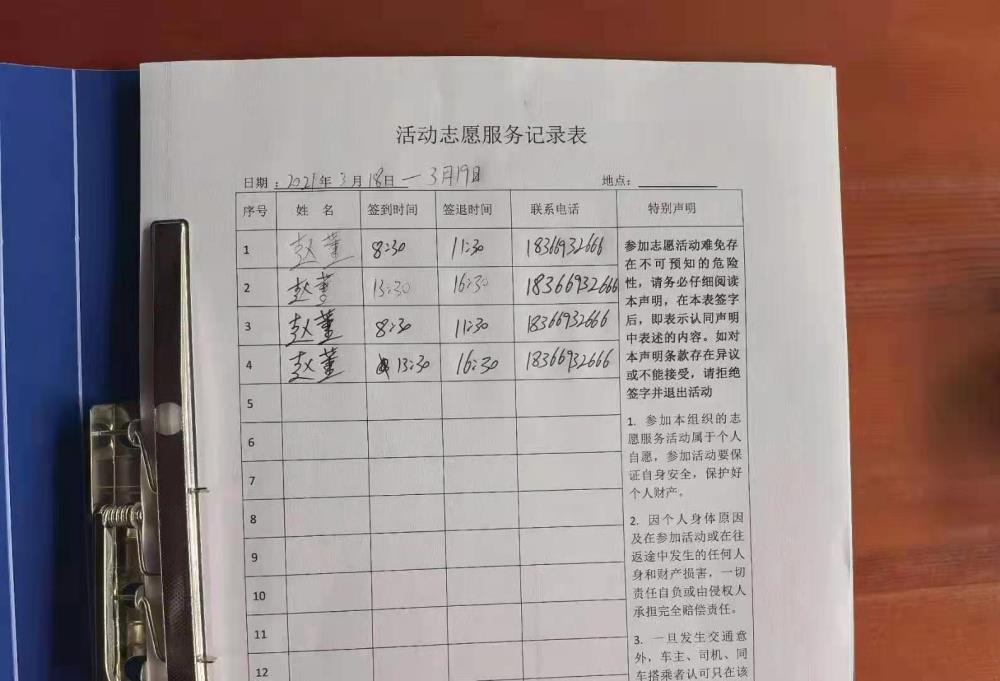 活动志愿服务记录表
日期：2021年3月18日—3月19日 地点：
序号 姓 名 签到时间 签退时间 联系电话 特别声明
1 赵董 8:30 11:30 18366932666
2 赵董 13:30 16:30 18366932666
3 赵董 8:30 11:30 18366932666
4 赵董 13:30 16:30 18366932666
5
6
7
8
9
10
11
12
参加志愿活动难免存
在不可预知的危险
性，请务必仔细阅读
本声明，在本表签字
后，即表示认同声明
中表述的内容。如对
本声明条款存在异议
或不能接受，请拒绝
签字并退出活动
1. 参加本组织的志
愿服务活动属于个人
自愿，参加活动要保
证自身安全，保护好
个人财产。
2. 因个人身体原因
及在参加活动或在往
返途中发生的任何人
身和财产损害，一切
责任自负或由侵权人
承担完全赔偿责任。
3. 一旦发生交通意
外，车主、司机、同
车搭乘者认可只在该